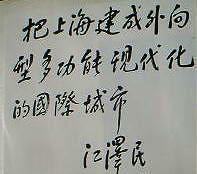 把上海建成外向
型多功能现代化
的國際城市
江澤民